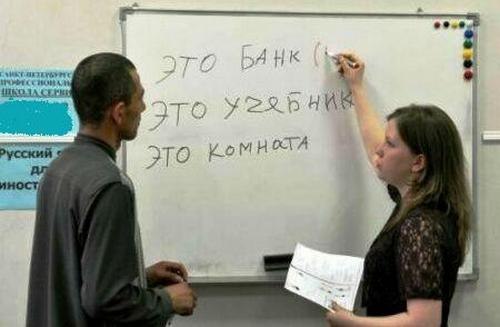 САНКТ-ПЕТЕРБУРГ
ПРОФЕССИОНАЛ
ШКОЛА СЕРВИ
Русский
для
иност
ЭТО БАНК (
ЭТО УЧЕБНИК
ЭТО КОМНАТА